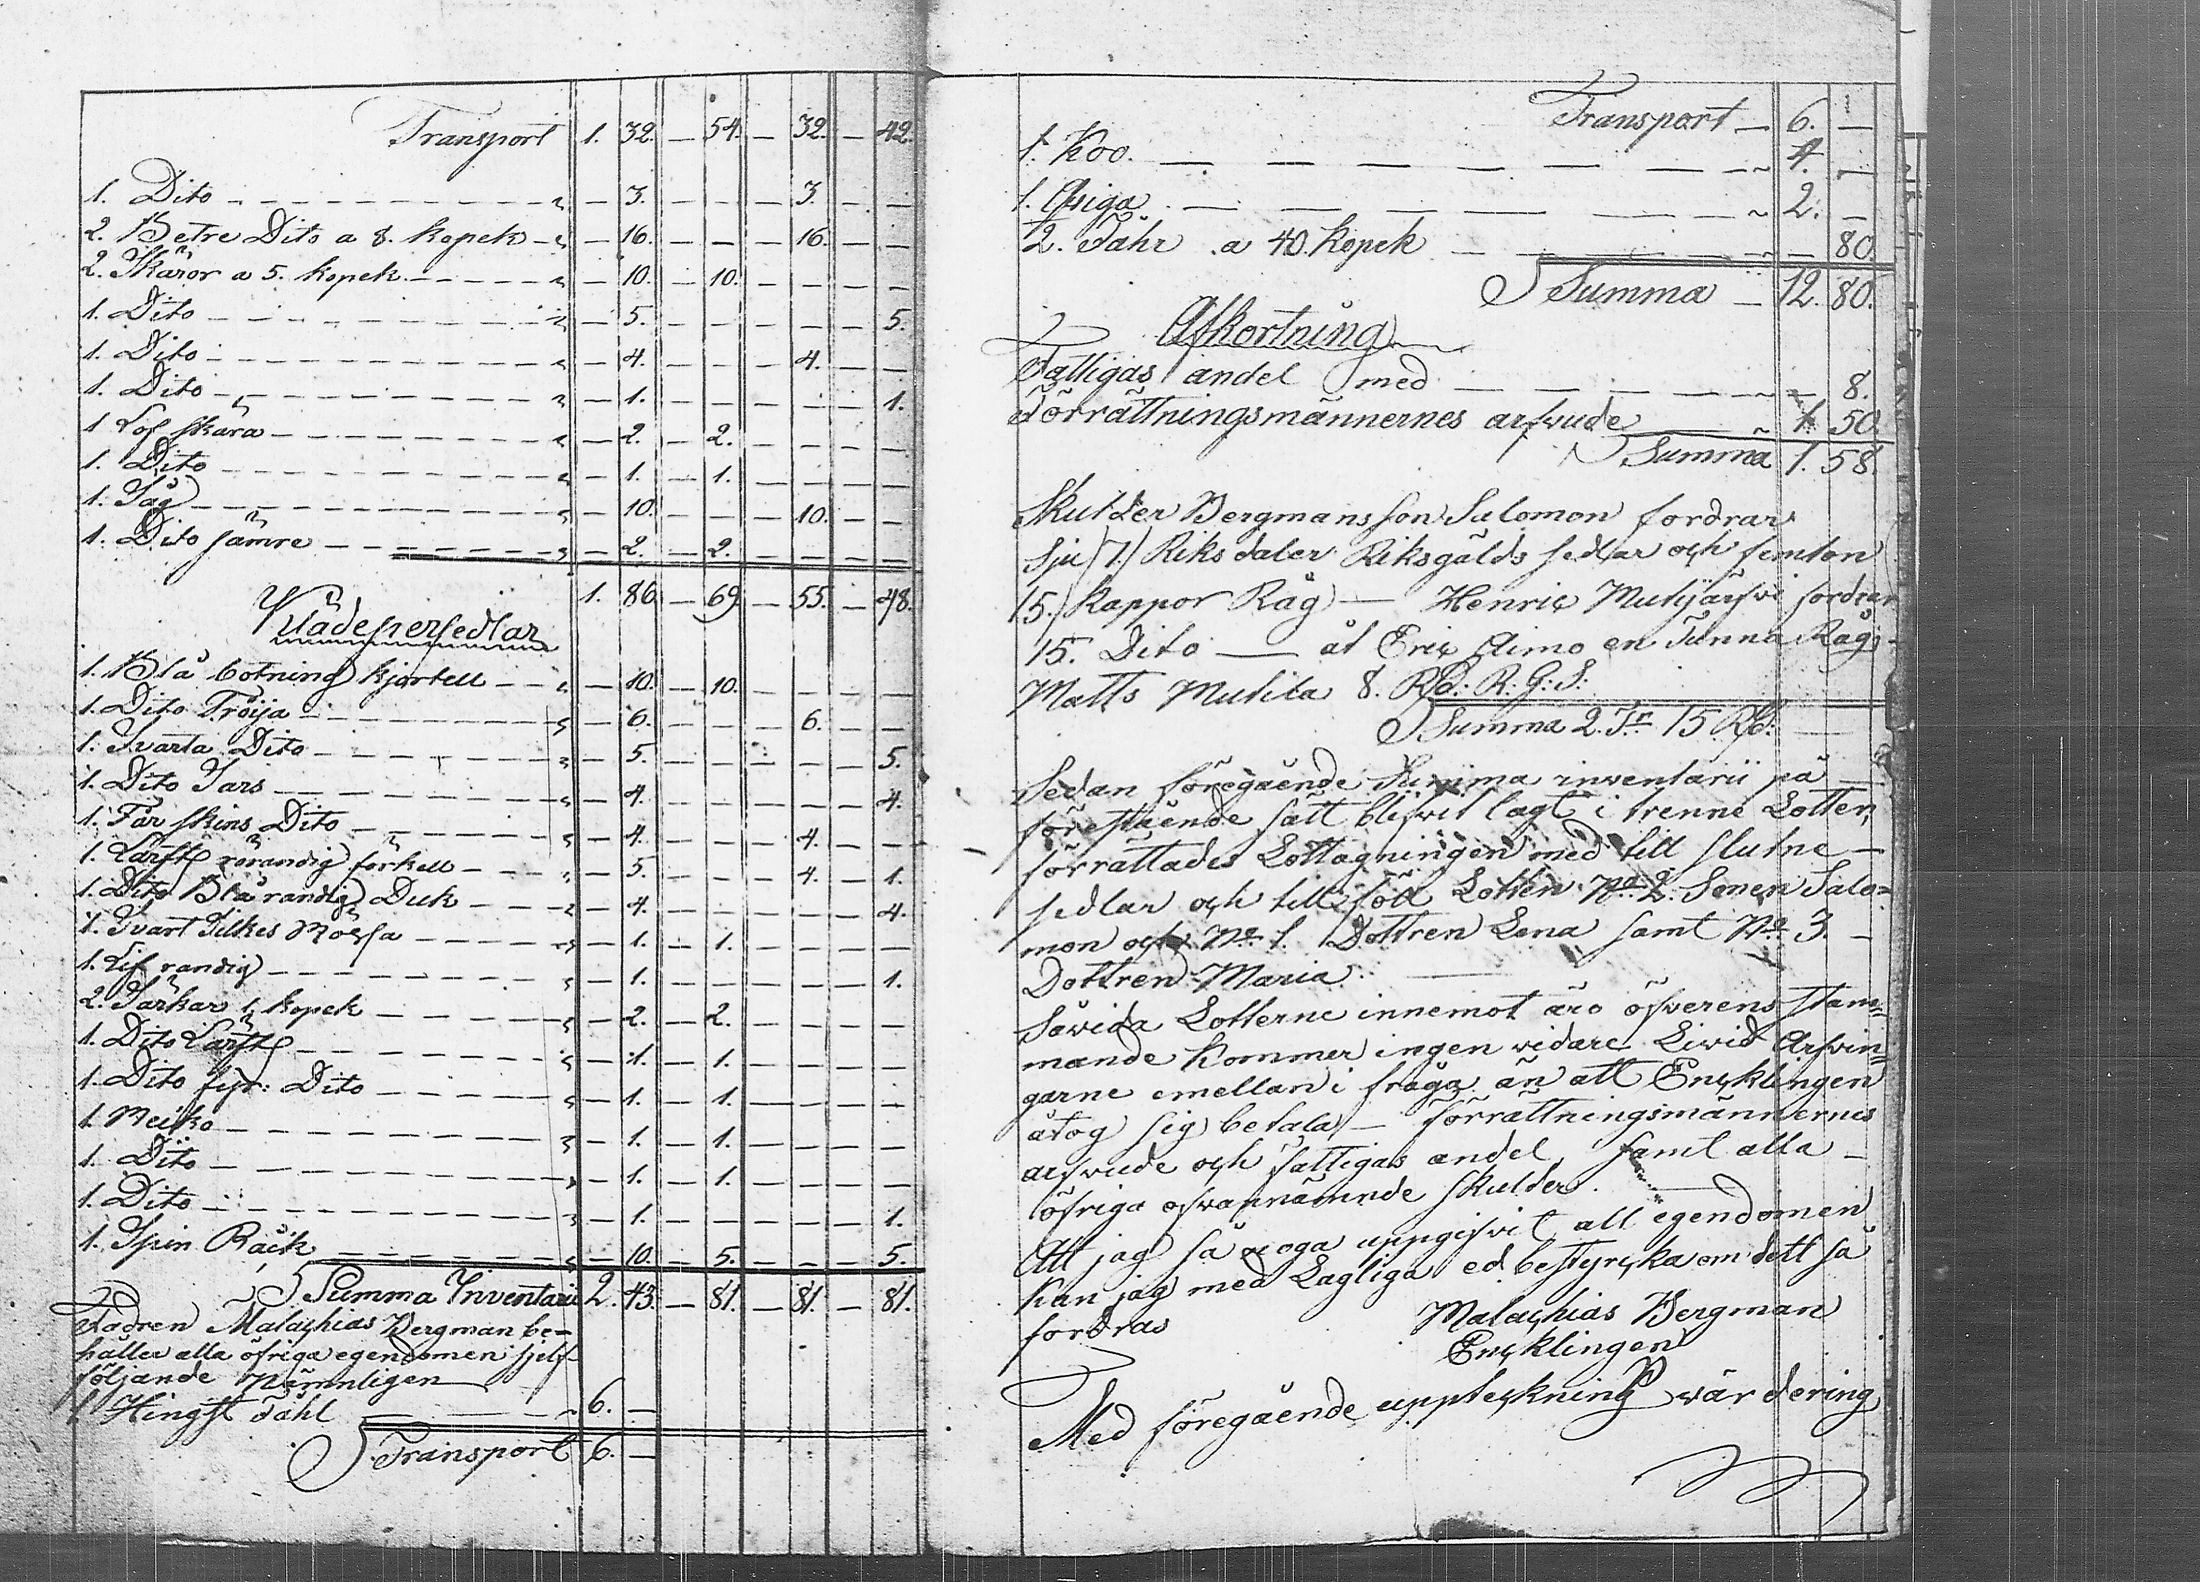 Transport 1. 32. — 54. — 32. — 42.
1. Dito — 3. — — — 3. — —
2. Betre Dito a 8. kopek — 16. — — — 16. — —
2. Skäror a 5. kopek — 10. — 10. — — — —
1. Dito — 5. — — — — — 5.
1. Dito — 4. — — — 4. — —
1. Dito — 1. — — — — — 1.
1 Löf skära — 2. — 2. — — — —
1. Dito — 1. — 1. — — — —
1. Såg — 10. — — — 10. — —
1. Dito sämre — 2. — 2. — — — —
1. 86. — 69. — 55. — 48.
Klädepersedlar
1. Blå botning kjortell — 10. — 10. — — — —
1. Dito Tröija — 6. — — — 6. — —
1. Svarta Dito — 5. — — — — — 5.
1. Dito Sars — 4. — — — — — 4.
1. Får skins Dito — 4. — — — 4. — —
1. Lärft rörandig förkell — 5. — — — 4. — 1.
1. Dito Blårandig Duk — 4. — — — — — 4.
1. Svart Silkes Mössa — 1. — 1. — — — —
1. Lif randig — 1. — — — — — 1.
2. Särkar 1 kopek — 2. — 2. — — — —
1. Dito Lärft — 1. — 1. — — — —
1. Dito fyr: Dito — 1. — 1. — — — —
1. Meiko — 1. — 1. — — — —
1. Dito — 1. — 1. — — — —
1. Dito — 1. — — — — — 1.
1. Spin Råck — 10. — 5. — — — 5.
Summa Inventarii 2. 43. — 81. — 81. — 81.
Fadren Malachias Bergman be-
håller alla öfriga egendomen sjelf
följande nämnligen
1. Hingst Fåhl — 6. —
Transport 6. —
Transport — 6. —
1. Koo. — 4. —
1. Qviga — 2. —
2. Fåhr a 40. kopek — — 80.
Summa — 12. 80.
Afkortning
Fattigas andel med — — 8.
Förrättningsmännernes arfvude — 1. 50.
Summa 1. 58.
Skulder Bergmans son Salomon fordrar
sju /7./ Riksdaler Riksgälds sedlar och femton
15./ Kappor Råg — Henric Mutijärfvi fordrar
15. Dito — åt Eric Aimo en Tunna Råg
Matts Mutila 8. Rd: R: G: S:
Summa 2. Tr 15 Rd:
Sedan föregående Summa inventarii på
förestående sätt blifvit lagt i trenne Lotter,
förrättades Lottagningen med till slutne —
sedlar och tillföll Lotten No 2. Sonen Salo=
mon och No 1. Dottren Lena samt No 3. —
Dottren Maria.
Såvida Lotterne innemot äro öfverens stäm=
mande kommer ingen vidare Livid Arfvin=
garne emellan i fråga än att Encklingen
åtog sig betala — förrättningsmännernes
arfvude och fattigas andel, samt alla —
öfriga ofvannämnde skulder.
Att jag så noga uppgifvit all egendomen
kan jag med Lagliga ed bestyrcka om dett så
fordras Malachias Bergman
Encklingen
Med föregående uppteckning värdering